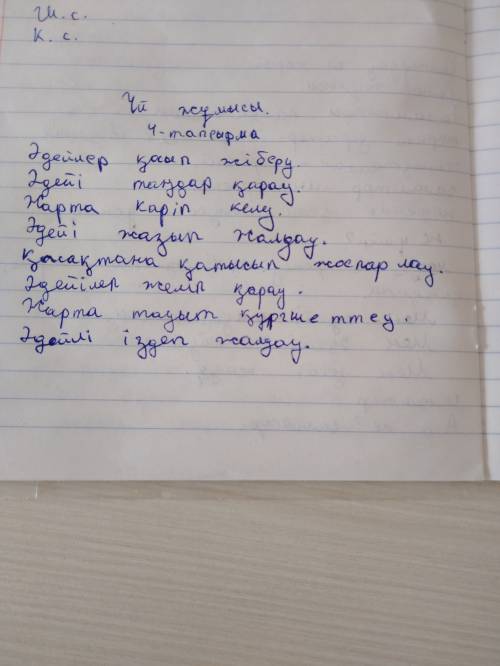 Ш. с.
К. с.
Үй жұмысы.
4-тапсырма
Әдейлер қазып жіберу.
Әдейі таңдар қарау.
Жарта каріп келу.
Әдейі жазып жалдау.
Қасақтана қатысып жоспарлау.
Әдейілер жеміп қарау.
Жарта тазып құргше ттеу.
Әдейлі іздеп жалдау.